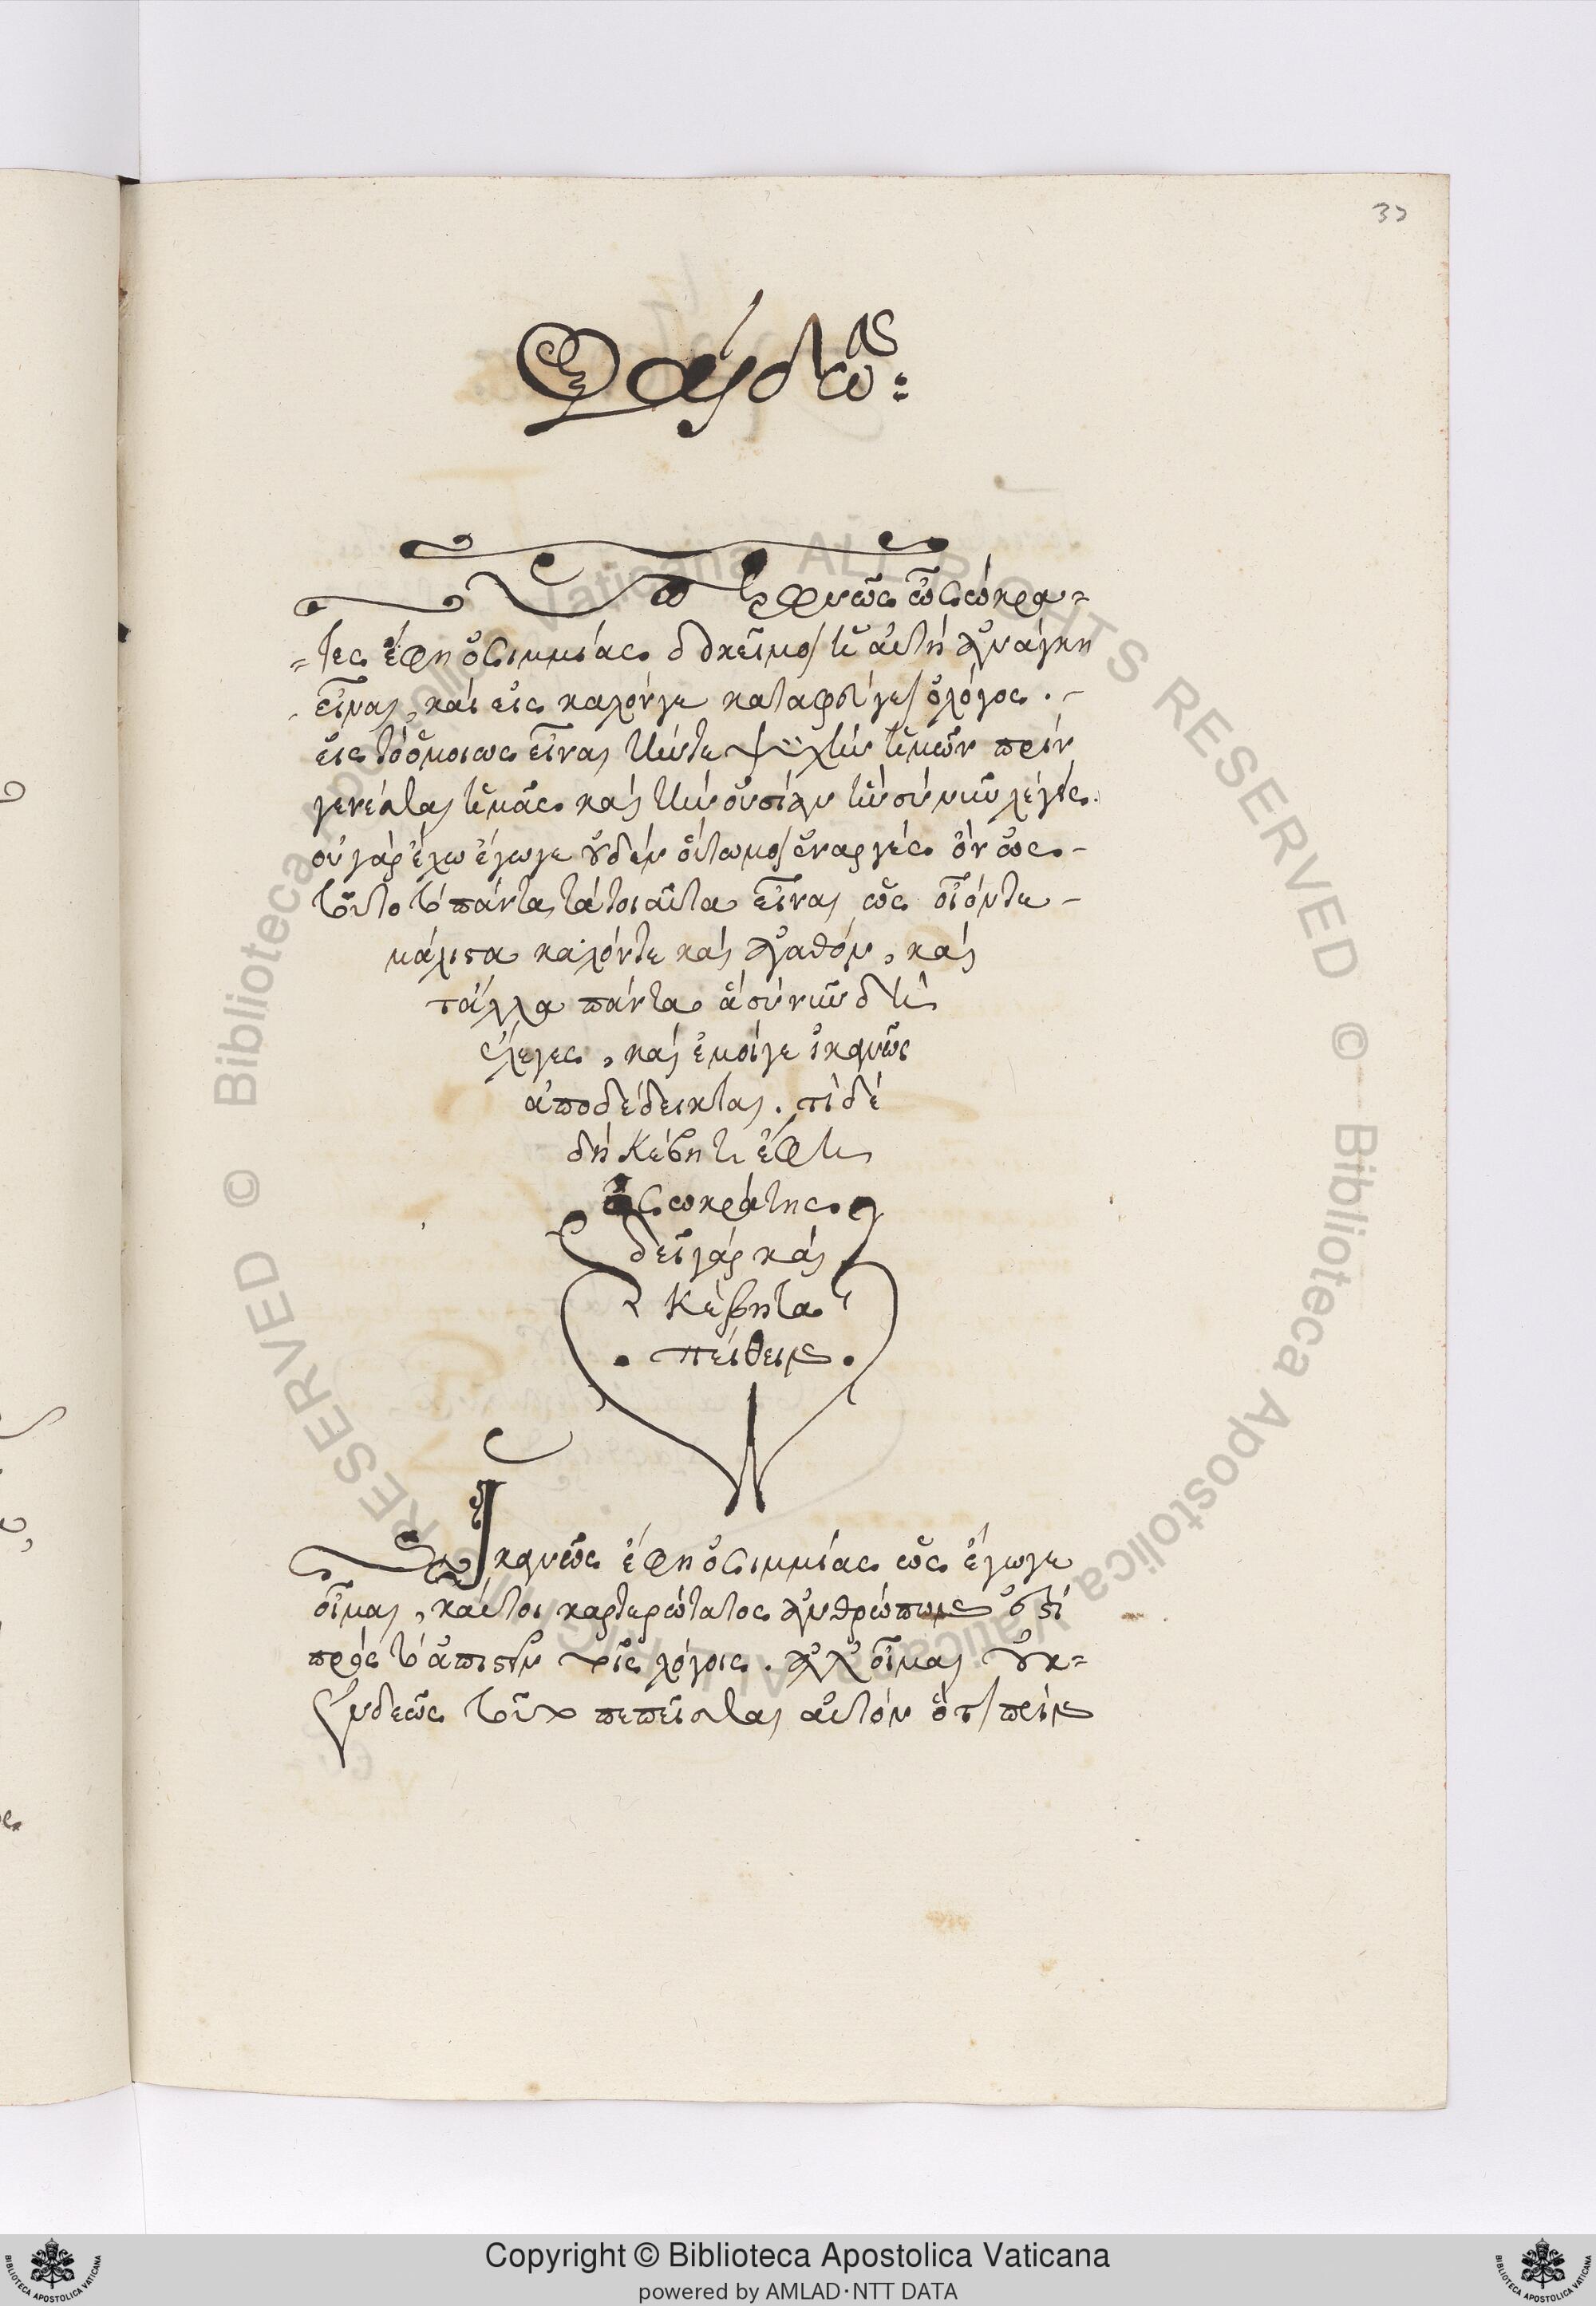 33
Φαίδων:
Ὑπερφυῶς ὦ Σώκρα=
=τες ἔφη ὁ Σιμμίας δοκεῖ μοι ἡ αὐτὴ ἀνάγκη
εἶναι, καὶ εἰς καλόν γε καταφεύγει ὁ λόγος .-
εἰς τὸ ὁμοίως εἶναι τήν τε ψυχὴν ἡμῶν πρὶν
γενέσθαι ἡμᾶς καὶ τὴν οὐσίαν ἣν σὺ νῦν λέγεις.
οὐ γὰρ ἔχω ἔγωγε οὐδὲν οὕτω μοι ἐναργὲς ὂν ὡς -
τοῦτο τὸ πάντα τὰ τοιαῦτα εἶναι ὡς οἷόν τε -
μάλιστα καλόν τε καὶ ἀγαθὸν, καὶ
τἄλλα πάντα ἃ σὺ νῦν δὴ
ἔλεγες, καὶ ἐμοίγε ἱκανῶς
ἀποδέδεικται. τί δὲ
δὴ Κέβητι ἔφη
ὁ Σωκράτης
δεῖ γὰρ καὶ
Κέβητα
. πείθειν .
Ἱκανῶς ἔφη ὁ Σιμμίας ὡς ἔγωγε
οἶμαι, καίτοι καρτερώτατος ἀνθρώπων ἐστὶ
πρὸς τὸ ἀπιστεῖν τοῖς λόγοις. ἀλλ' οἶμαι οὐκ=
ἐνδεῶς τοῦτο πεπεῖσθαι αὐτὸν ὅτι πρὶν
Copyright © Biblioteca Apostolica Vaticana
powered by AMLAD·NTT DATA